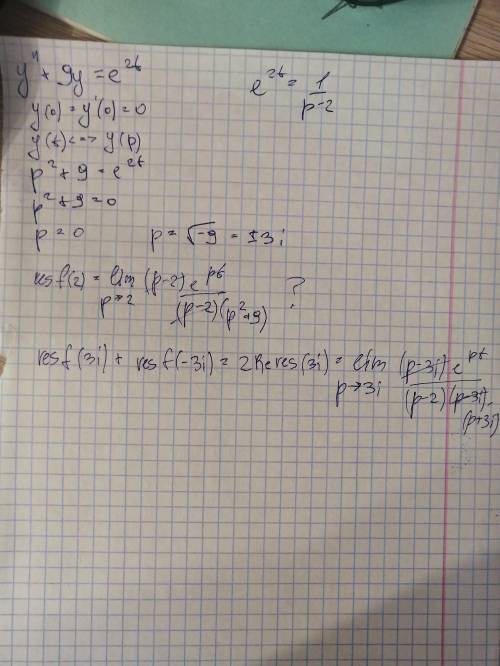 y'' + 9y = e^{2t}
e^{2t} = 1/(p-2)
y(0) = y'(0) = 0
y(t) <=> y(p)
p^2 + 9 = e^{2t}
p^2 + 9 = 0
p = 0 p = √-9 = ±3i
resf(2) = lim_{p→2} (p-2) e^{pt} / ((p-2)(p^2+9)) ?
resf(3i) + resf(-3i) = 2Re res(3i) = lim_{p→3i} (p-3i) e^{pt} / ((p-2)(p-3i)·(p+3i))